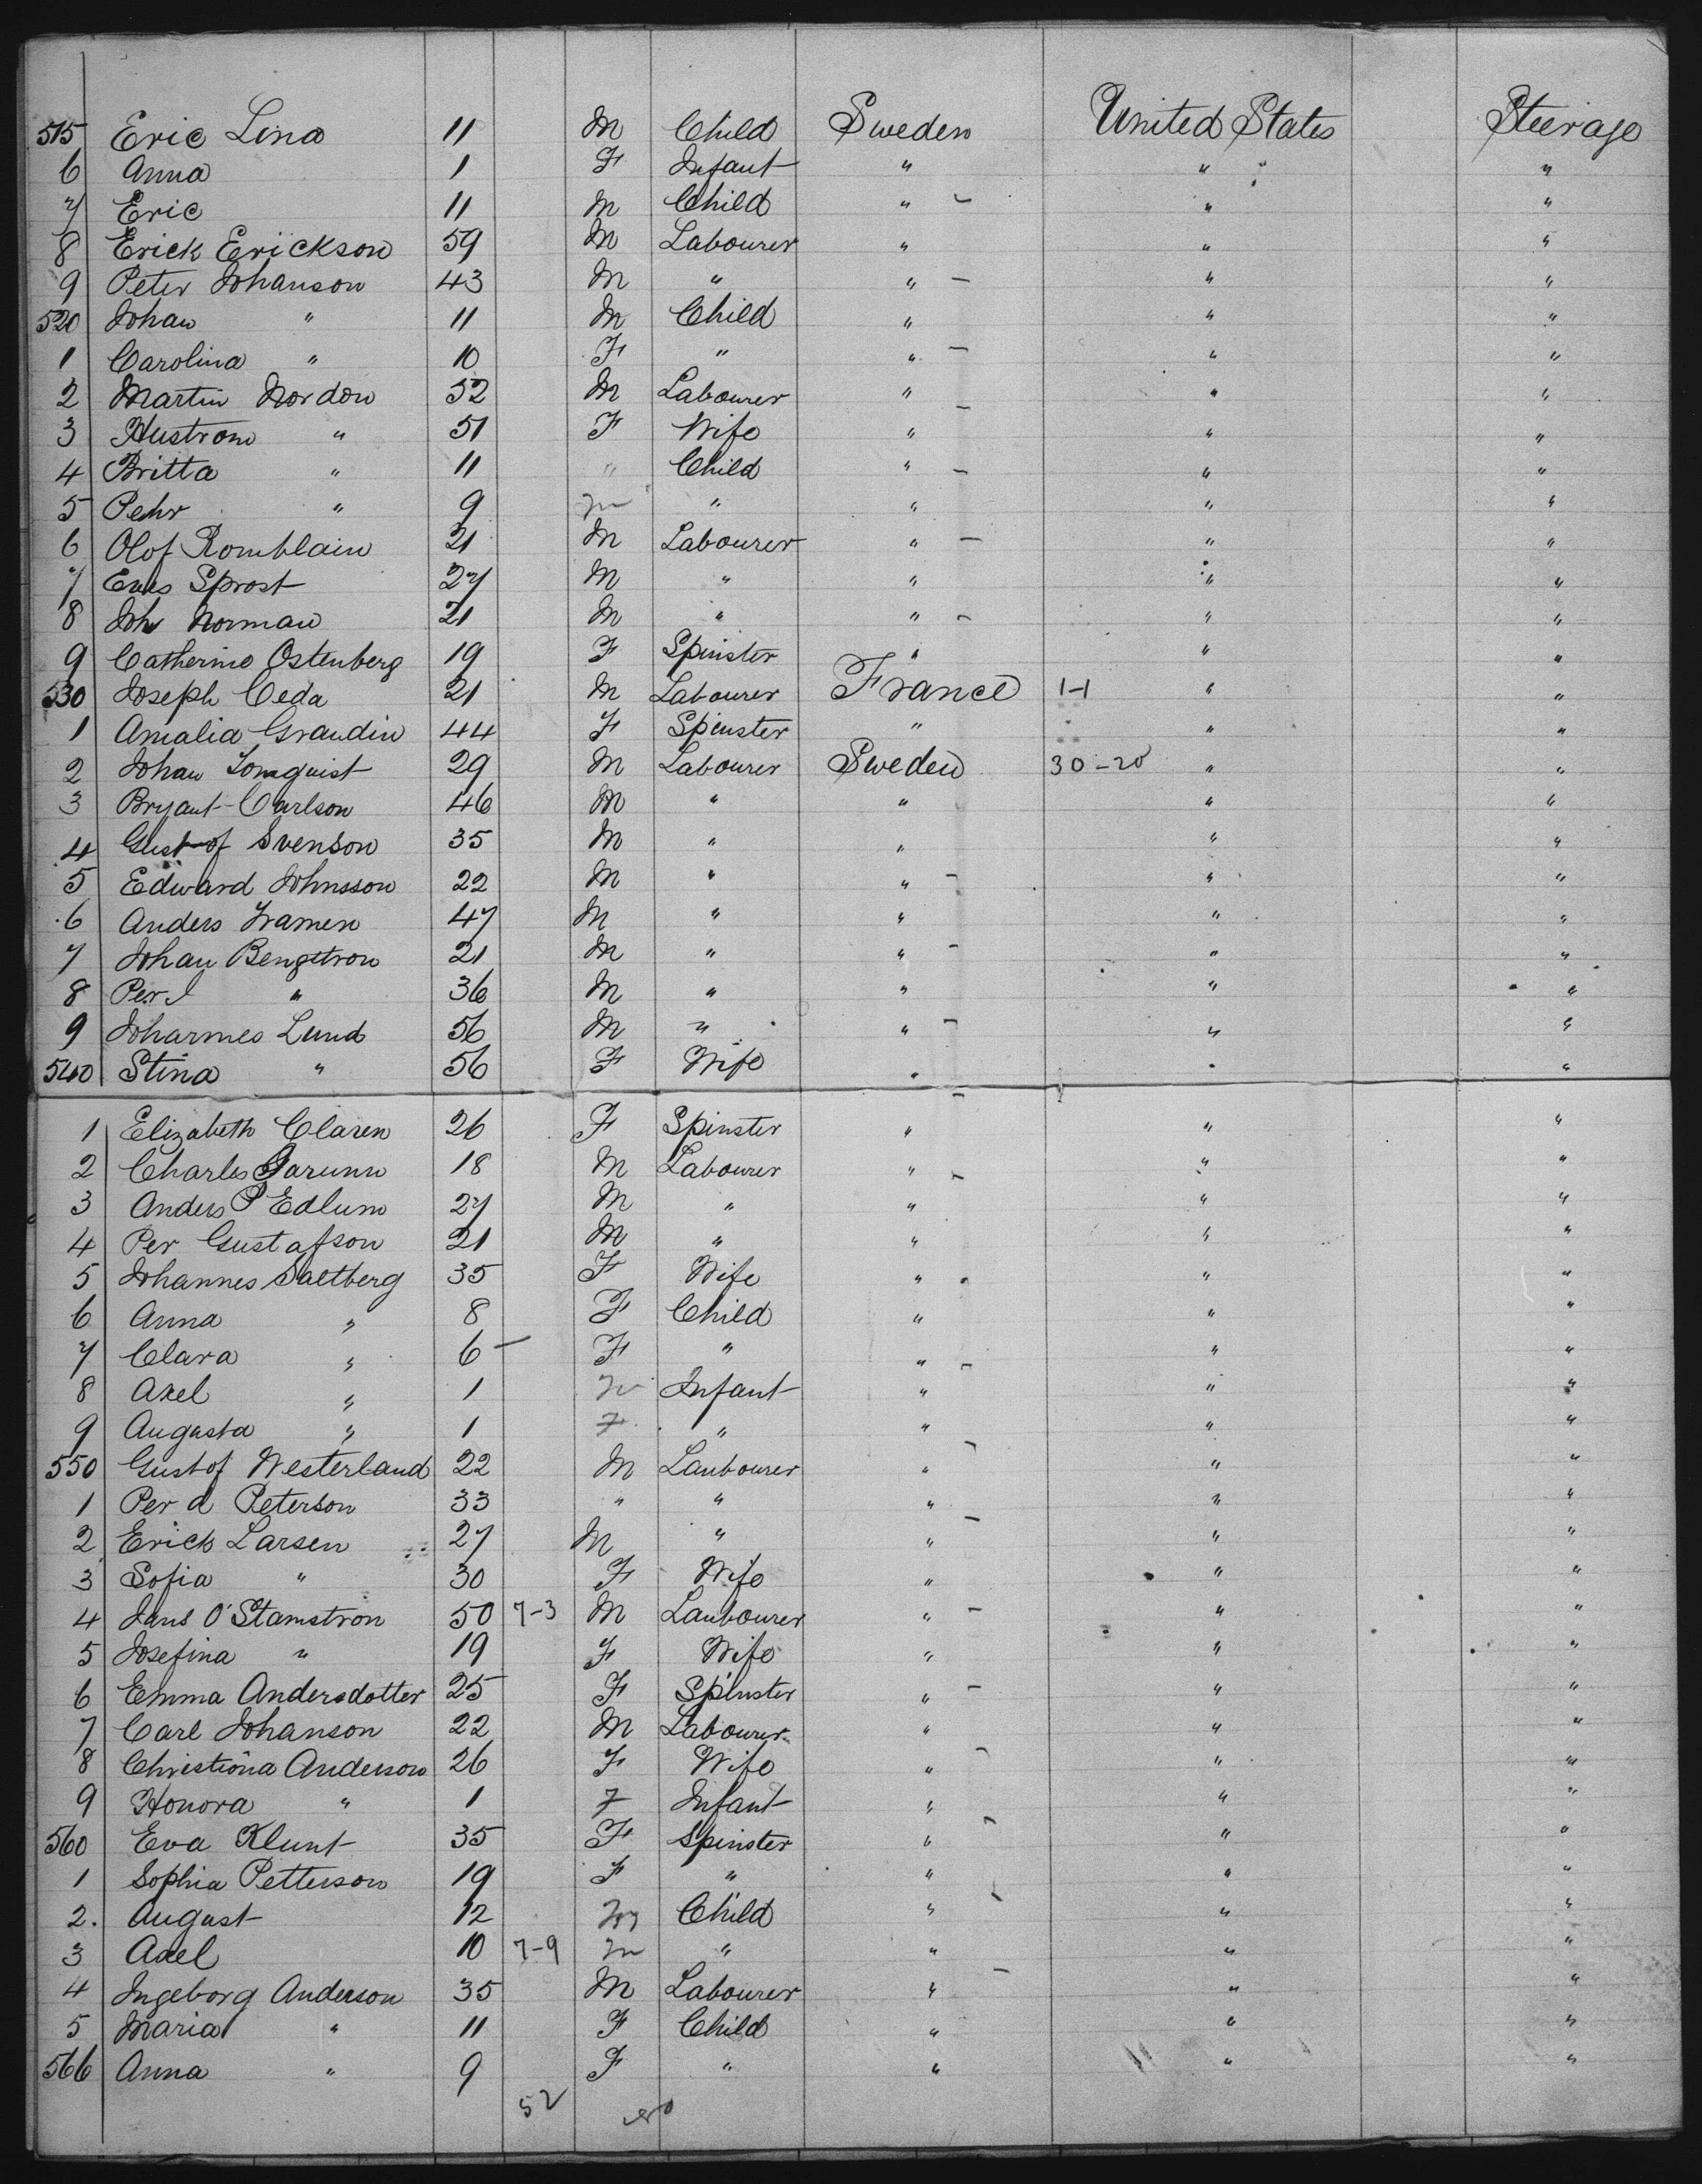 515 Eric Lina 11 M Child Sweden United States Steerage
6 Anna 1 F Infant " " "
7 Eric 11 M Child " " "
8 Erick Erickson 59 M Labourer " " "
9 Peter Johanson 43 M " " " "
520 Johan " 11 M Child " " "
1 Carolina " 10 F " " " "
2 Martin Nordon 52 M Labourer " " "
3 Hustrom " 51 F Wife " " "
4 Britta " 11 " Child " " "
5 Pehr " 9 m " " " "
6 Olof Romblain 21 M Labourer " " "
7 Sprost 27 M " " " "
8 Joh Norman 21 M " " " "
9 Catherine Ostenberg 19 F Spinster " " "
530 Joseph Ceda 21 M Labourer France 1-1 " "
1 Amalia Grandin 44 F Spinster " " "
2 Johan 29 M Labourer Sweden 30-20 " "
3 Bryant Carlson 46 M " " " "
4 Gustof Svenson 35 M " " " "
5 Edward Johnsson 22 M " " " "
6 Anders 47 M " " " "
7 Johan Bengstron 21 M " " " "
8 Per I " 36 M " " " "
9 Joharmes Lund 56 M " " " "
540 Stina " 56 F Wife " " "
1 Elizabeth Claren 26 F Spinster " " "
2 Charles 18 M Labourer " " "
3 Anders P Edlum 27 M " " " "
4 Per Gustafson 21 M " " " "
5 Johannes Saltberg 35 F Wife " " "
6 Anna " 8 F Child " " "
7 Clara " 6 F " " " "
8 Axel " 1 m Infant " " "
9 Augusta " 1 F " " " "
550 Gustof Westerland 22 M Laubourer " " "
1 Per a Peterson 33 " " " " "
2 Erick Larsen 27 M " " " "
3 Sofia " 30 F Wife " " "
4 Jans O'Stamstron 50 7-3 M Laubourer " " "
5 Josefina " 19 F Wife " " "
6 Emma Andersdotter 25 F Spinster " " "
7 Carl Johanson 22 M Labourer " " "
8 Christiona Anderson 26 F Wife " " "
9 Honora " 1 F Infant " " "
560 Eva Klunt 35 F Spinster " " "
1 Sophia Petterson 19 F " " " "
2. August 12 m Child " " "
3 Axel 10 7-9 m " " " "
4 Ingeborg Anderson 35 M Labourer " " "
5 Maria " 11 F Child " " "
566 Anna " 9 F " " " "
52